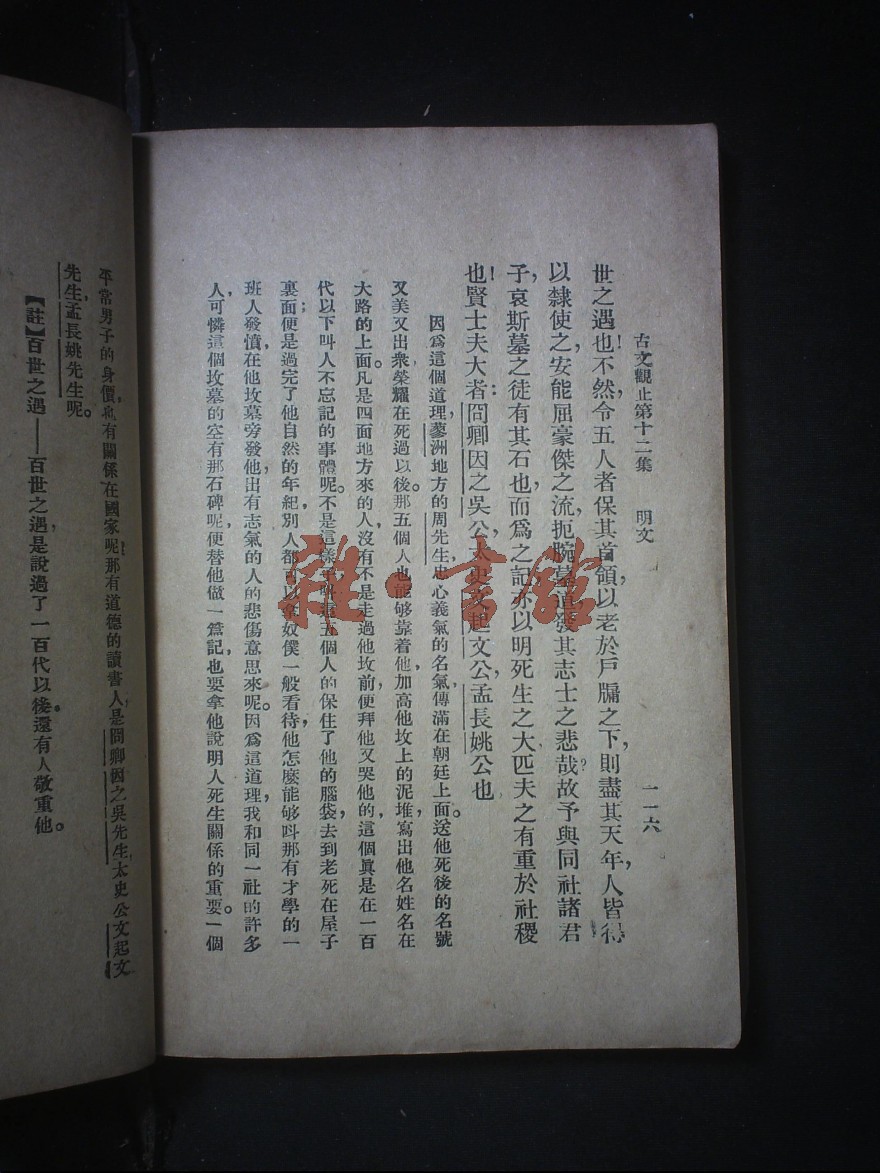 古文觀止第十二集　明文　一一六
世之遇也！不然令五人者保其首領，以老於戶牖之下，則盡其天年，人皆得
以隸使之，安能屈豪傑之流，扼腕墓道，發其志士之悲哉？故予與同社諸君
子，哀斯墓之徒有其石也，而爲之記，亦以明死生之大，匹夫之有重於社稷
也！賢士夫大者：冏卿因之吳公，太史文起文公，孟長姚公也
因爲這個道理，蓼洲地方的周先生忠心義氣的名氣傳滿在朝廷上面。送他死後的名號
又美又出衆，榮耀在死過以後。那五個人也能够靠着他，加高他坟上的泥堆，寫出他名姓名在
大路的上面。凡是四面地方來的人，沒有不是走過他坟前，便拜他又哭他的，這個眞是在一百
代以下叫人不忘記的事體呢。不是這樣子，呌這五個人的保住了他的腦袋，去到老死在屋子
裏面；便是過完了他自然的年紀，別人都可以拿奴僕一般看待他，怎麼能够呌那有才學的一
班人，發憤在他坟墓旁發他出有志氣的人的悲傷意思來呢。因爲這道理，我和同一社的許多
人，可憐這個坟墓的空有那石碑呢，便替他做一篇記，也要拿他說明人死生關係的重要。一個
平常男子的身價，也有關係在國家呢，那有道德的讀書人，是冏卿因之吳先生，太史公文起文
先生，孟長姚先生呢。
【註】百世之遇——百世之遇，是說過了一百代以後，還有人敬重他。
雅·書館